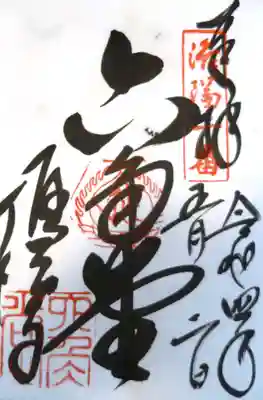 奉拝
洛陽一番
令和四年
五月二日
六角堂
頂法寺